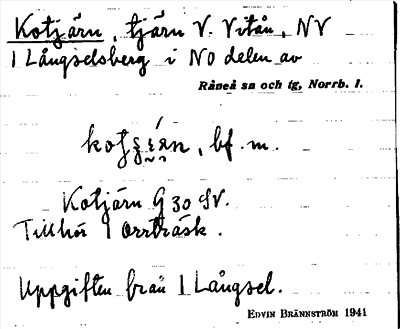 Kotjärn, tjärn V. Vitån, NV
I Långselsberg i NO delen av
Råneå sn och tg, Norrb. l.
bf. m.
Kotjärn G 30 SV.
Tillhör Orrträsk.
Uppgiften från I Långsel.
EDVIN BRÄNNSTRÖM 1941